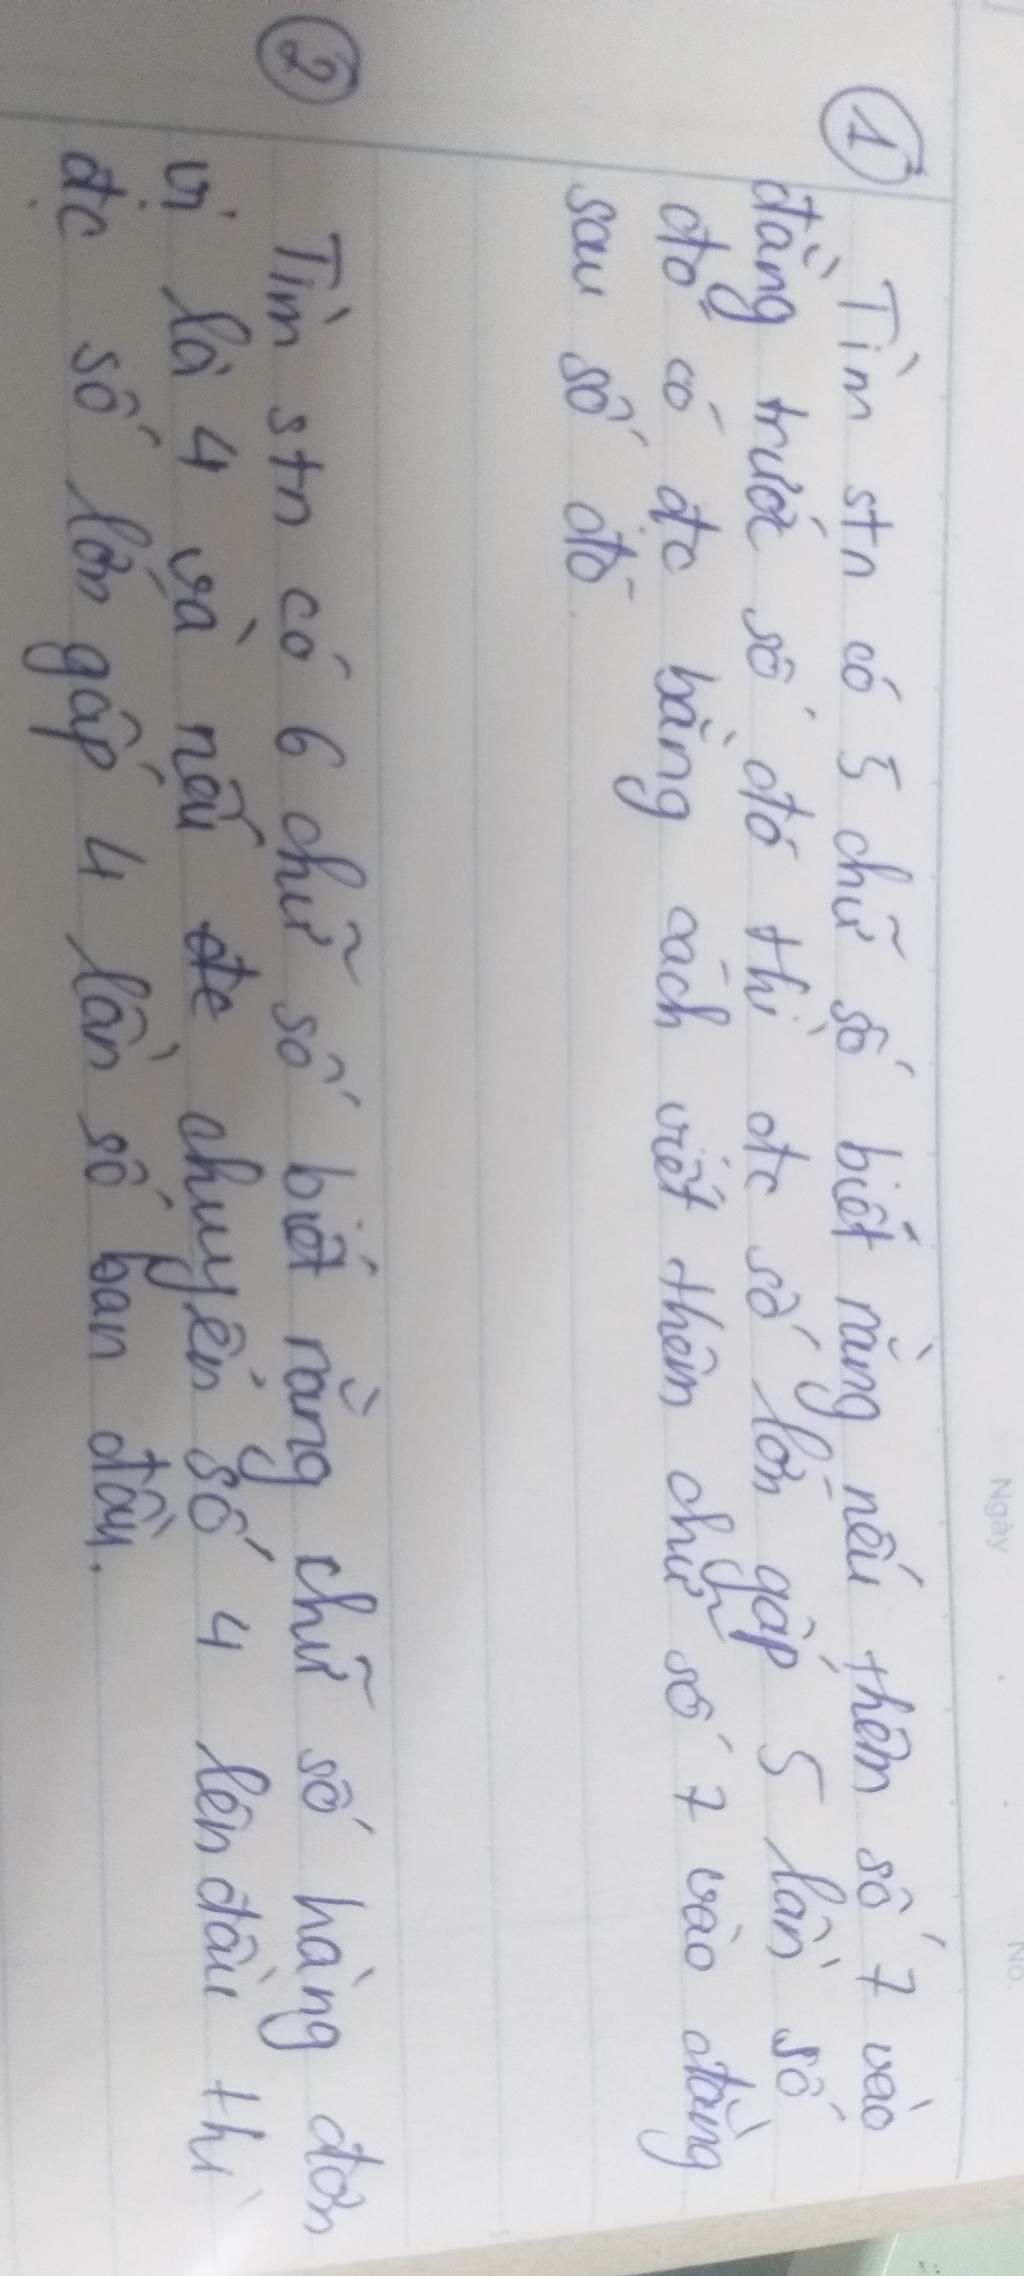 Ngày
No.
① Tìm stn có 5 chữ số biết rằng nếu thêm số 7 vào
đằng trước số đó thì đc số lớn gấp 5 lần số
đó có đc bằng cách viết thêm chữ số 7 vào đằng
sau số đó.
② Tìm stn có 6 chữ số biết rằng chữ số hàng đơn
vị là 4 và nếu chuyển số 4 lên đầu thì
đc số lớn gấp 4 lần số ban đầu.